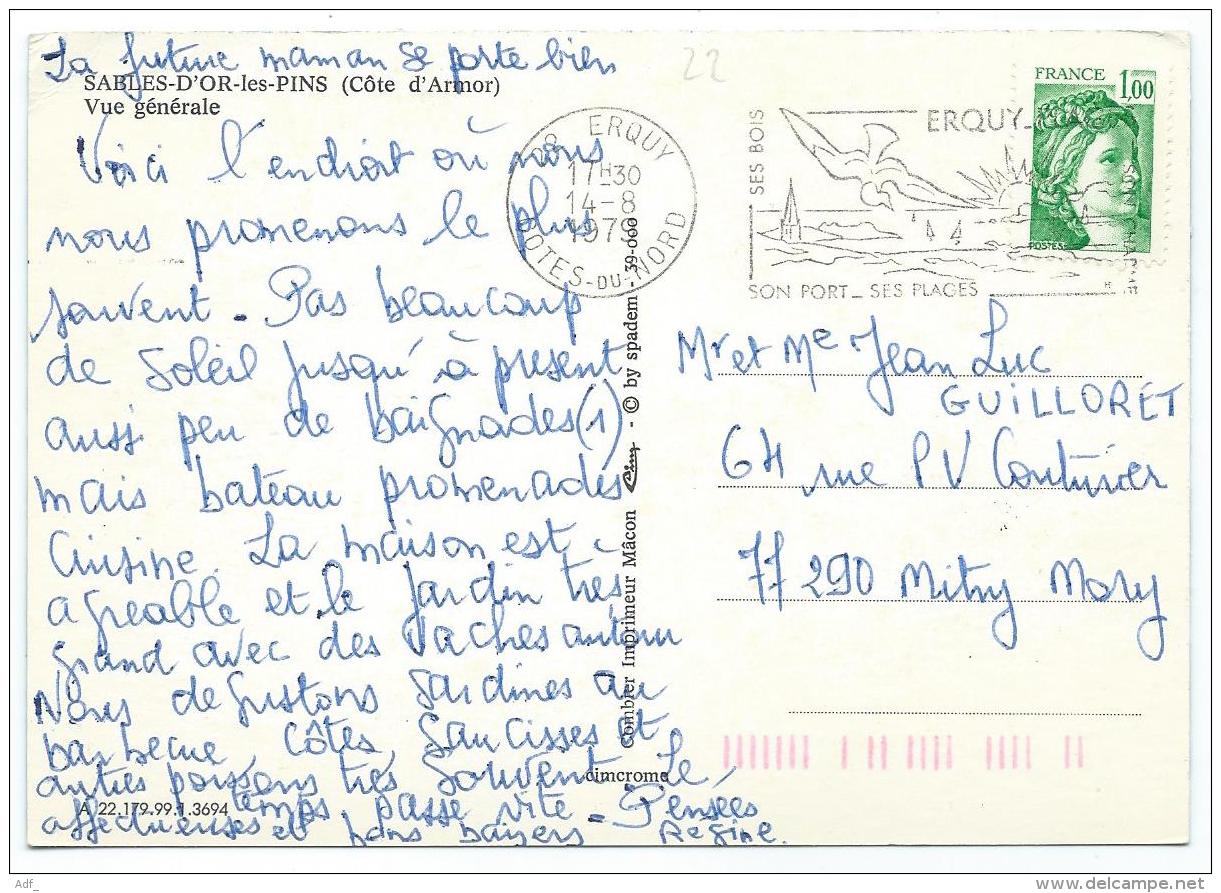 La future maman se porte bien
22
SABLES-D'OR-les-PINS (Côte d'Armor)
Vue générale
Voici l'endroit où nous
nous promenons le plus
souvent - Pas beaucoup
de soleil jusqu'à présent
aussi peu de baignades (1)
mais bateau promenades
cuisine. La maison est
agréable et le jardin très
grand avec des vaches autour
Nous degustons sardines au
barbecue, côtes, saucisses et
autres poissons très souvent - Le
temps passe vite - Pensées
affectueuses et bons baisers -
Régine.
A 22.179.99.1.3694
dimcrome
Combier Imprimeur Mâcon - © by spadem - 39-000
ERQUY
17H30
14-8
1979
COTES-DU-NORD
SES BOIS
ERQUY_
SON PORT_ SES PLAGES
FRANCE 1,00
POSTES
Mr et Me Jean Luc
GUILLORET
64 rue PV Couturier
77290 Mitry Mory
Adf_
delcampe.net